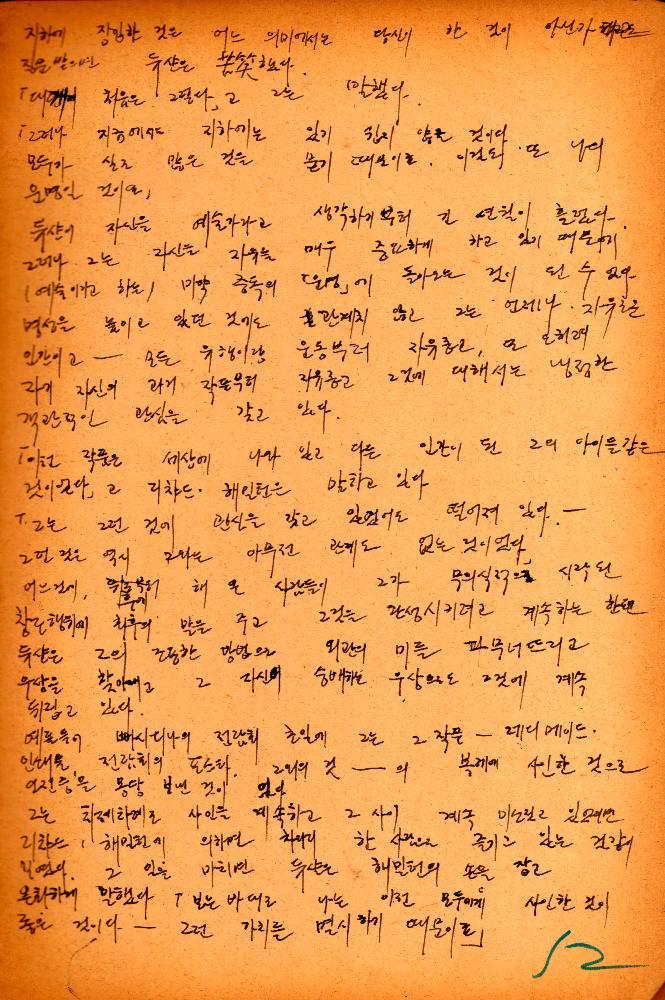 지하에 잠입한 것은 어느 의미에서는 당신이 한 것이 아닌가
질문받으면 듀샨은 苦笑했다.
「대개 처음은 그렇다」고 그는 말했다.
「그러나 지금에서도 지하에는 있기 쉽지 않은 것이다
모두가 실로 많은 것을 묻기 때문이로. 이것도 또 나의
운명인 것이로」
듀샨이 자신을 예술가라고 생각하기부터 긴 연월이 흘렀다.
그러나 그는 자신을 자유를 매우 중요하게 하고 있기 때문에
(예술이라고 하는) 마약 중독의 「운명」에 돌아오는 것이 될 수 없다
명성은 높이고 있던 것에도 관계치 않고 그는 언제나 자유로운
인간이고 — 모든 유행이랑 운동부터 자유롭고, 또 오히려
자기 자신의 과거 작품부터 자유롭고 그것에 대해서는 냉정한
객관적인 관심을 갖고 있다.
「이런 작품은 세상에 나와 있고 다른 인간이 된 그의 아이들같은
것이었다」고 리차드·해밀턴은 말하고 있다
「그는 그런 것에 관심을 갖고 있었어도 떨어져 있다. —
그런 것은 역시 그와는 아무런 관계도 없는 것이었다」
어느것에, 해 온 사람들이 그가 무의식적으로 시작된
창조행위에 최후의 말을 주고 그것을 완성시키려고 계속하는 한편
듀샨은 그의 조용한 방법으로 외관의 미를 파무너뜨리고
우상을 그 자신이 숭배하는 우상으로도 그것에 계속
뒤집고 있다.
예를들어 빠사디나의 전람회 초일에 그는 그 작품 — 레디메이드·
인쇄물 전람회의 포스타. 그외의 것 — 의 복제에 사인한 것으로
오전중을 몽땅 보낸 것이 있다
그는 차례차례로 사인을 계속하고 그 사이 계속 미소짓고 있으면서
리차드·해밀턴에 의하면 차라리 한 사람으로 즐기고 있는 것같이
보였다. 그 일을 마치면 듀샨은 해밀턴의 손을 잡고
온화하게 말했다 「보는 바대로 나는 이전 모두에게 사인한 것이
좋은 것이다 — 그런 가치를 멸시하기 때문이로」
12